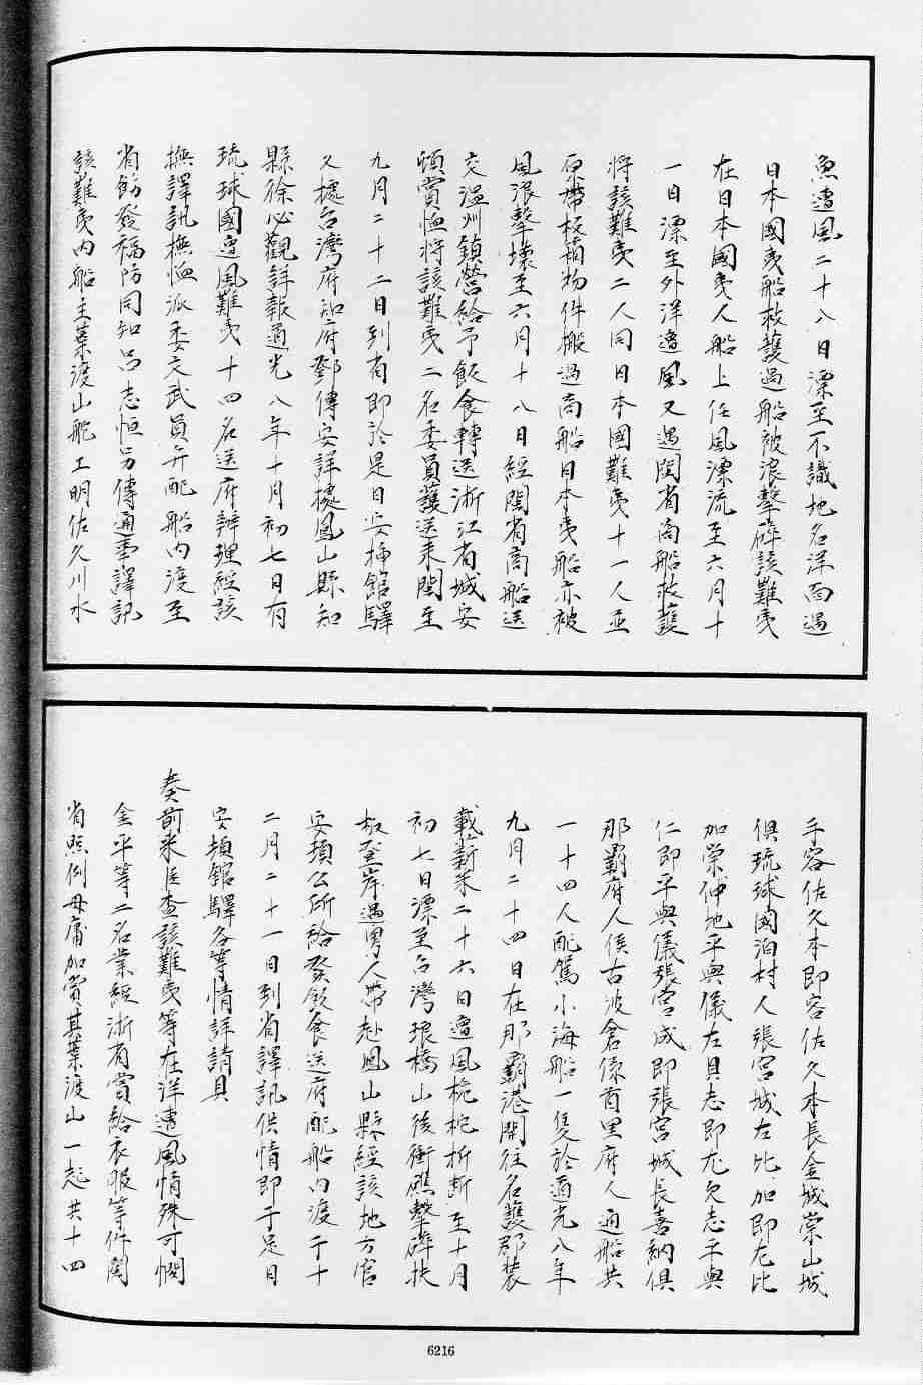 魚遭風二十八日漂至不識地名洋面遇
日本國夷船救護過船被浪擊碎該難夷
在日本國夷人船上任風漂流至六月十
一日漂至外洋遭風又遇閩省商船救護
將該難夷二人同日本國難夷十一人並
原帶板箱物件搬過商船日本夷船亦被
風浪擊壞至六月十八日經閩省商船送
交溫州鎮營給予飯食轉送浙江省城安
頓賞恤將該難夷二名委員護送来閩至
九月二十二日到省即於是日安插館驛
又據台灣府知府鄧傳安詳據鳳山縣知
縣徐必觀詳報道光八年十月初七日有
琉球國遭風難夷十四名送府辦理經該
撫譯訊撫恤派委文武員弁配船內渡至
省飭發福防同知呂志恒另傳通事譯訊
該難夷內船主棄渡山舵工明佐久川水
手容佐久本即容佐久本長金城崇山城
俱琉球國泊村人張宮城左比加即尤比
加榮仲地平與儀左貝志即尤久志平與
仁即平與儀張宮成即張宮城長喜納俱
那霸府人侯古波倉係首里府人通船共
一十四人配駕小海船一隻於道光八年
九月二十四日在那霸港開往名護郡裝
載薪米二十六日遭風桅柁折斷至十月
初七日漂至台灣琅橋山後衝礁擊碎扶
板登岸遇粵人帶赴鳳山縣經該地方官
安頓公所給發飯食送府配船內渡于十
二月二十一日到省譯訊供情即于是日
安頓館驛各等情詳請具
奏前来臣查該難夷等在洋遭風情殊可憫
金平等二名業經浙省賞給衣服等件閩
省照例毋庸加賞其葉渡山一起共十四
6216